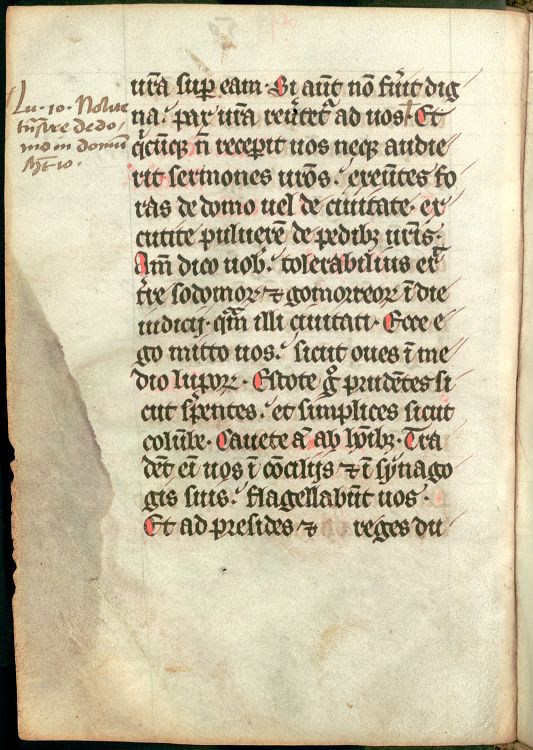 Lu · 10 · Nolite
tn̄sire de do,
mo in domū
Mt 10 .
ur̄a sup eam · Si aūt nō fūit dig
na : pax ur̄a reūtet̄ ad uos · Et
q̄cūq; n̄ recepit uos neq; audie
rit sermones ur̄os : exeūtes fo
ras de domo uel de ciuitate · ex
cutite puluerē de pedib; ur̄is :
Am̄ dico uob̄ : tolerabilius er̄
tr̄e sodomoꝝ ⁊ gomorreoꝝ ī die
iudicij · qm̄ illi ciuitati · Ecce e
go mitto uos : sicut oues ī me
dio lupoꝝ · Estote g° prudētes si
cut sp̄entes : et simplices sicut
colūbe · Cauete a᷒ ab hoīb; · Tra
dēt eī uos ī cōcilijs ⁊ ī synago
gis suis : flagellabūt uos ·
Et ad presides ⁊ reges du